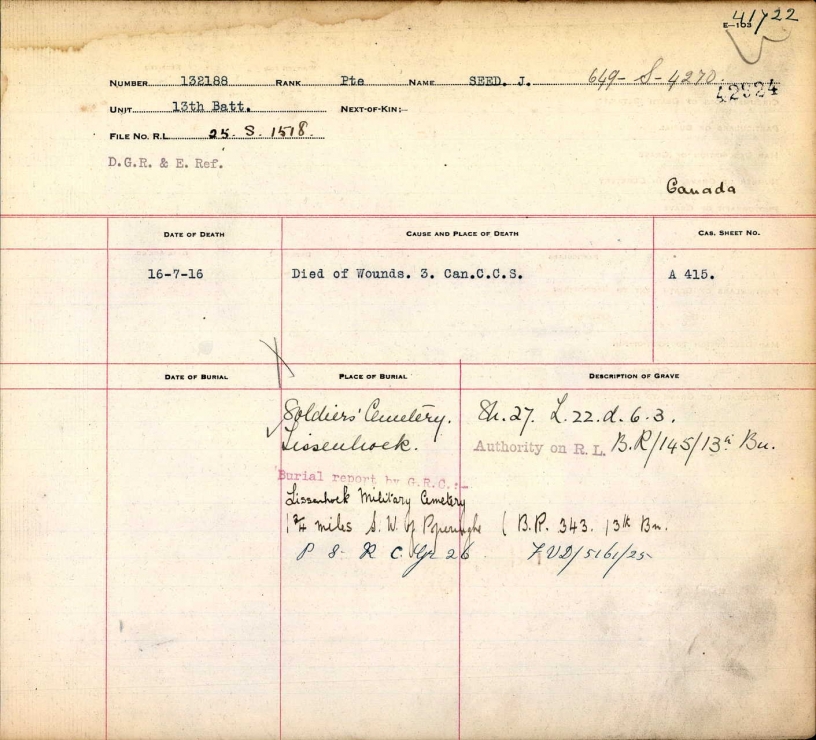 41/22
E-103
NUMBER 132188 RANK Pte NAME SEED. J. 649-S-4270.
42924
UNIT 13th Batt. NEXT-OF-KIN:-
FILE NO. R.L. 25. S. 1518.
D.G.R. & E. Ref.
Canada
DATE OF DEATH CAUSE AND PLACE OF DEATH CAS. SHEET NO.
16-7-16 Died of Wounds. 3. Can.C.C.S. A 415.
DATE OF BURIAL PLACE OF BURIAL DESCRIPTION OF GRAVE
Soldiers' Cemetery. Sh. 27. L. 22. d. 6. 3.
Lissenhoek. Authority on R. L. B.R/145/13th Bn.
Burial report by G.R.C.:-
Lissenhoek Military Cemetery
1 3/4 miles S. W. of Poperinghe ( B.P. 343. 13th Bn.
P 8 R C Gr 26 7 VD/5161/25